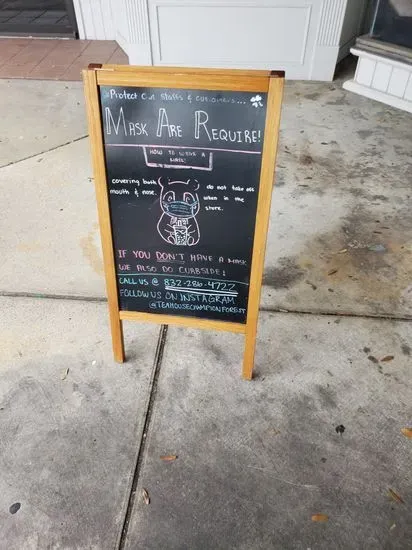 Protect our staffs & customers...
MASK ARE REQUIRE!
HOW TO WEAR A
MASK:
covering both
mouth & nose.
do not take off
when in the
store.
IF YOU DON'T HAVE A MASK
WE ALSO DO CURBSIDE!
CALL US @ 832-286-4722
FOLLOW US ON INSTAGRAM
@TEAHOUSECHAMPIONFOREST